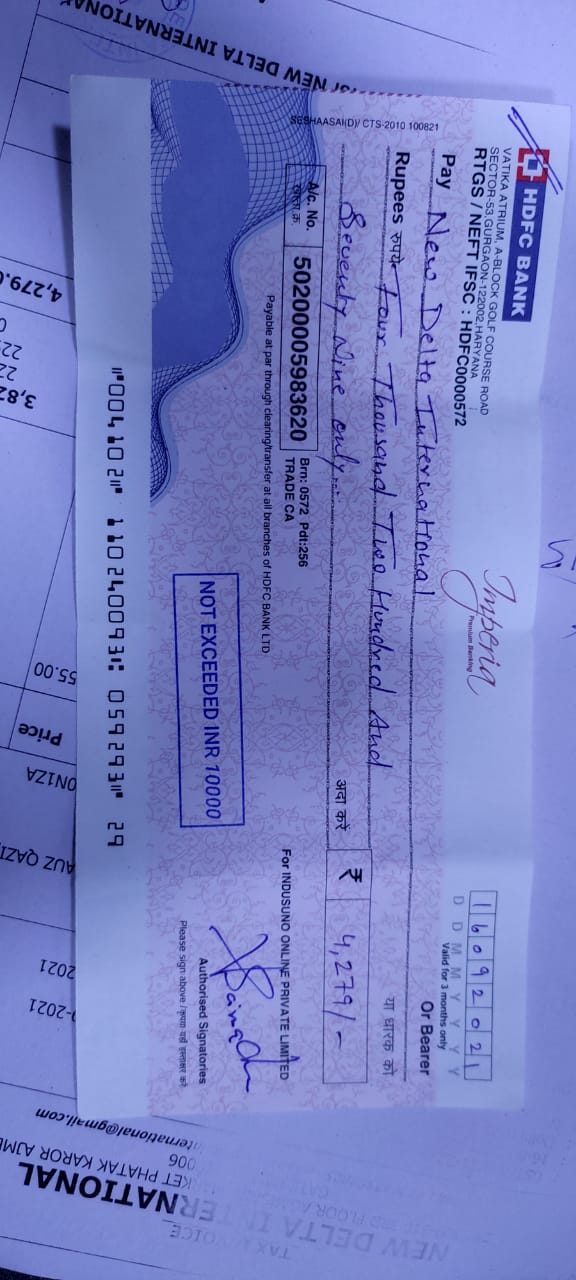 HDFC BANK
VATIKA ATRIUM, A-BLOCK GOLF COURSE ROAD
SECTOR-53,GURGAON-122002,HARYANA
RTGS / NEFT IFSC : HDFC0000572
Imperia
Premium Banking
16092021
D D M M Y Y Y Y
Valid for 3 months only
Pay New Delta International
Or Bearer
या धारक को
Rupees रुपये Four Thousand Two Hundred And
Seventy Nine only
अदा करें
₹ 4,279/-
A/c. No.
खाता क्र.
50200005983620
Brn: 0572 Pdt:256
TRADE CA
Payable at par through clearing/transfer at all branches of HDFC BANK LTD
For INDUSUNO ONLINE PRIVATE LIMITED
NOT EXCEEDED INR 10000
Authorised Signatories
Please sign above /
SESHAASAI(D)/ CTS-2010 100821
⑈004102⑈ 110240093⑆ 059293⑈ 29
NEW DELTA INTERNATIONAL
4,279.
55.00
Price
0N1ZA
AUZ QAZI
2021
-2021
international@gmail.com
006
KET PHATAK KAROR AJME
NATIONAL
NEW DELTA